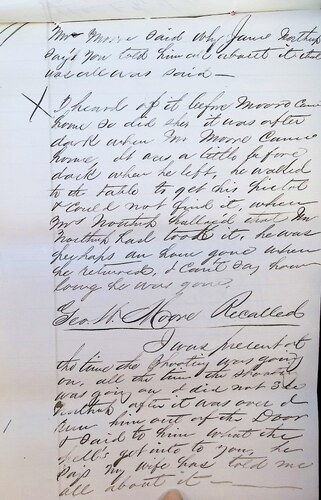 Mr Moore said why James Northup
says you told him all about it that
was all was said —
I heard of it before Moore came
home so did she, it was after
dark when Mr Moore came
home. It was a little before
dark when he left, he walked
to the table to get his Pistol
& could not find it, when
Mrs Northup hallered that Mr
Northup had took it, he was
perhaps an hour gone when
he returned, I can't say how
long he was gone.
Geo. W. Moore Recalled
I was present at
the time the shooting was going
on, all the time the
was going on I did not see
Northup after it was over I
him out of the Door
& said to him what the
hell's got into you, he
says my wife has told me
all about it —